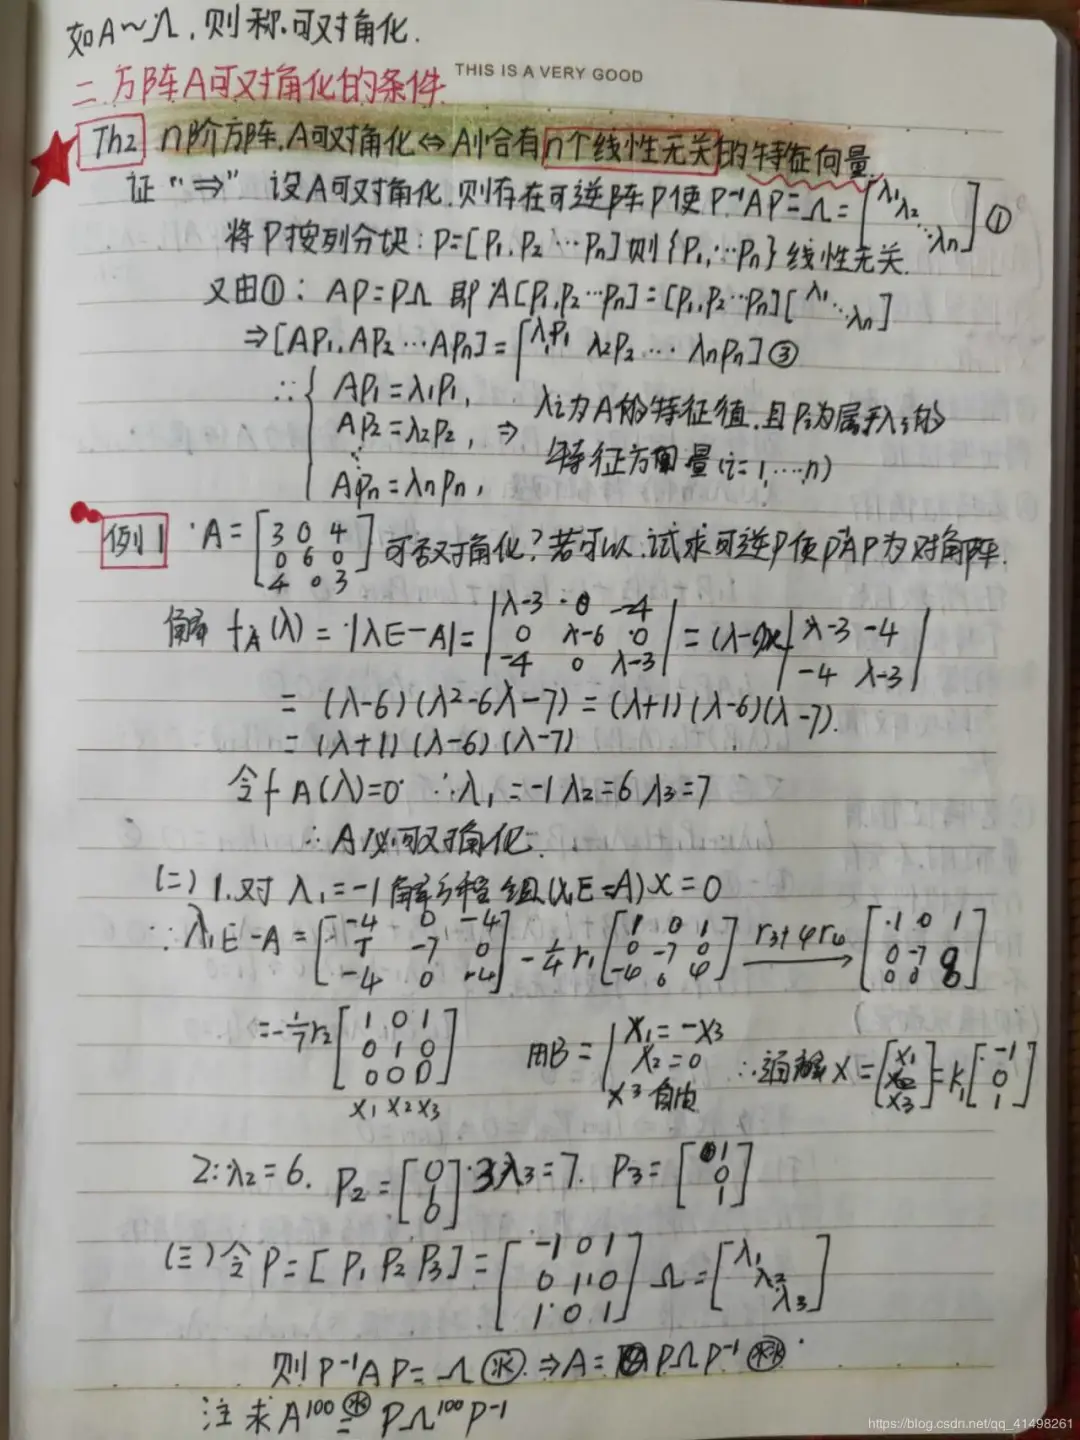 如A~Ω,则称可对角化.
THIS IS A VERY GOOD
二.方阵A可对角化的条件
Th2 n阶方阵A可对角化⇔A恰有n个线性无关的特征向量
证 "⇒" 设A可对角化.则存在可逆阵P使P⁻¹AP=Ω=[λ₁ λ₂ ⋱ λn] ①
将P按列分块:P=[P₁,P₂…Pn]则{P₁,…Pn}线性无关.
又由①: AP=PΩ 即 A[P₁,P₂…Pn]=[P₁,P₂…Pn][λ₁ ⋱ λn]
⇒[AP₁,AP₂…APn]=[λ₁P₁ λ₂P₂ … λnPn]③
∴{ AP₁=λ₁P₁,
AP₂=λ₂P₂, ⇒ λi为A的特征值,且Pi为属于λi的
⋮ 特征方向量(i=1,…n)
APn=λnPn,
例1 A=[3 0 4; 0 6 0; 4 0 3] 可否对角化?若可以,试求可逆P使P⁻¹AP为对角阵.
解 fA(λ)=|λE-A|=|λ-3 0 -4; 0 λ-6 0; -4 0 λ-3|=(λ-6)×|λ-3 -4; -4 λ-3|
=(λ-6)(λ²-6λ-7)=(λ+1)(λ-6)(λ-7).
=(λ+1)(λ-6)(λ-7)
令fA(λ)=0 ∴λ₁=-1 λ₂=6 λ₃=7
∴A必可对角化.
(二) 1.对λ₁=-1解方程组(λ₁E-A)X=0
∵λ₁E-A=[-4 0 -4; -7 0; -4 0 -4] -¼r₁ [1 0 1; 0 -7 0; -4 0 4] r₃+4r₁ → [1 0 1; 0 -7 0; 0 0 0]
=-1/7r₂ [1 0 1; 0 1 0; 0 0 0] 用B={X₁=-X₃ X₂=0 X₃自由 ∴通解X=[X₁ X₂ X₃]=K₁[-1 0 1]
X₁ X₂ X₃
2:λ₂=6. P₂=[0 1 0] 3λ₃=7. P₃=[1 0 1]
(三)令P=[P₁ P₂ P₃]=[-1 0 1; 0 1 0; 1 0 1] Ω=[λ₁ λ₂ λ₃]
则P⁻¹AP=Ω ㊌ ⇒A=PΩP⁻¹
注求A¹⁰⁰=PΩ¹⁰⁰P⁻¹
https://blog.csdn.net/qq_41498261